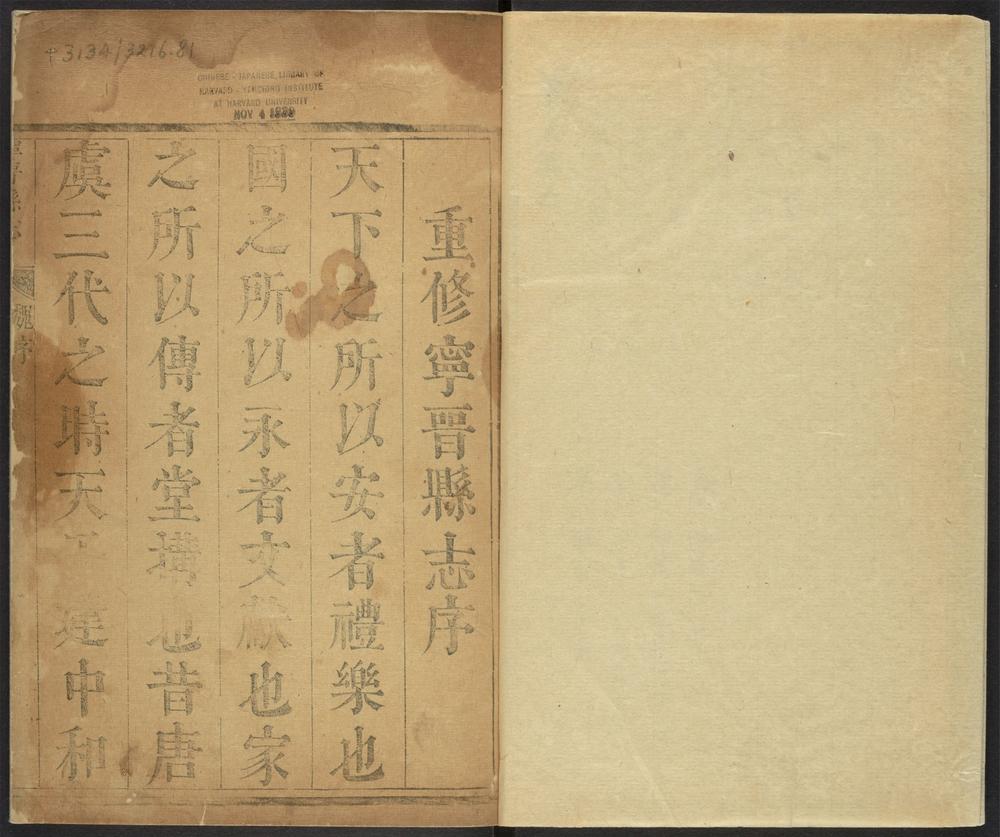 T3134/3216.81
CHINESE - JAPANESE LIBRARY OF
HARVARD - YENCHING INSTITUTE
AT HARVARD UNIVERSITY
NOV 4 1939
重修寧晋縣志序
天下之所以安者禮樂也
國之所以永者文獻也家
之所以傳者堂構也昔唐
虞三代之時天建中和
序